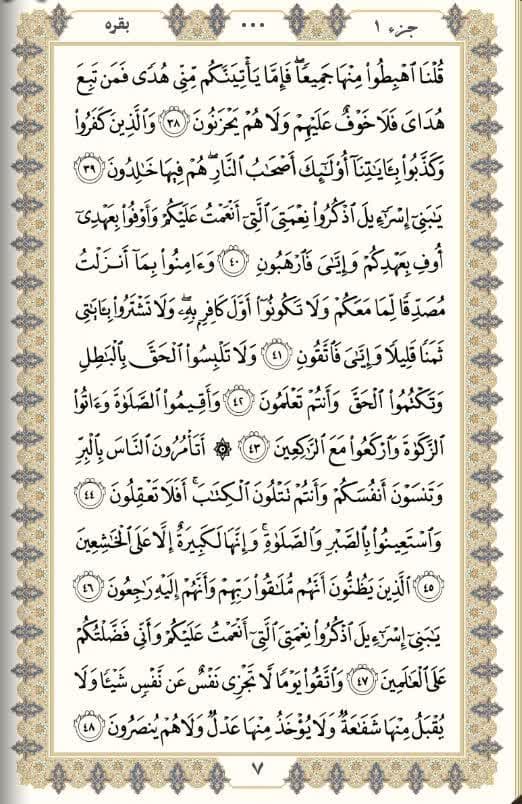 جزء ۱ ... بقره
قُلْنَا ٱهْبِطُوا۟ مِنْهَا جَمِيعًاۖ فَإِمَّا يَأْتِيَنَّكُم مِّنِّى هُدًى فَمَن تَبِعَ
هُدَاىَ فَلَا خَوْفٌ عَلَيْهِمْ وَلَا هُمْ يَحْزَنُونَ ۳۸ وَٱلَّذِينَ كَفَرُوا۟
وَكَذَّبُوا۟ بِـَٔايَـٰتِنَآ أُو۟لَـٰٓئِكَ أَصْحَـٰبُ ٱلنَّارِۖ هُمْ فِيهَا خَـٰلِدُونَ ۳۹
يَـٰبَنِىٓ إِسْرَٰٓءِيلَ ٱذْكُرُوا۟ نِعْمَتِىَ ٱلَّتِىٓ أَنْعَمْتُ عَلَيْكُمْ وَأَوْفُوا۟ بِعَهْدِىٓ
أُوفِ بِعَهْدِكُمْ وَإِيَّـٰىَ فَٱرْهَبُونِ ۴۰ وَءَامِنُوا۟ بِمَآ أَنزَلْتُ
مُصَدِّقًا لِّمَا مَعَكُمْ وَلَا تَكُونُوٓا۟ أَوَّلَ كَافِرٍۭ بِهِۦۖ وَلَا تَشْتَرُوا۟ بِـَٔايَـٰتِى
ثَمَنًا قَلِيلًا وَإِيَّـٰىَ فَٱتَّقُونِ ۴۱ وَلَا تَلْبِسُوا۟ ٱلْحَقَّ بِٱلْبَـٰطِلِ
وَتَكْتُمُوا۟ ٱلْحَقَّ وَأَنتُمْ تَعْلَمُونَ ۴۲ وَأَقِيمُوا۟ ٱلصَّلَوٰةَ وَءَاتُوا۟
ٱلزَّكَوٰةَ وَٱرْكَعُوا۟ مَعَ ٱلرَّٰكِعِينَ ۴۳ ۞ أَتَأْمُرُونَ ٱلنَّاسَ بِٱلْبِرِّ
وَتَنسَوْنَ أَنفُسَكُمْ وَأَنتُمْ تَتْلُونَ ٱلْكِتَـٰبَۚ أَفَلَا تَعْقِلُونَ ۴۴
وَٱسْتَعِينُوا۟ بِٱلصَّبْرِ وَٱلصَّلَوٰةِۚ وَإِنَّهَا لَكَبِيرَةٌ إِلَّا عَلَى ٱلْخَـٰشِعِينَ
۴۵ ٱلَّذِينَ يَظُنُّونَ أَنَّهُم مُّلَـٰقُوا۟ رَبِّهِمْ وَأَنَّهُمْ إِلَيْهِ رَٰجِعُونَ ۴۶
يَـٰبَنِىٓ إِسْرَٰٓءِيلَ ٱذْكُرُوا۟ نِعْمَتِىَ ٱلَّتِىٓ أَنْعَمْتُ عَلَيْكُمْ وَأَنِّى فَضَّلْتُكُمْ
عَلَى ٱلْعَـٰلَمِينَ ۴۷ وَٱتَّقُوا۟ يَوْمًا لَّا تَجْزِى نَفْسٌ عَن نَّفْسٍ شَيْـًٔا وَلَا
يُقْبَلُ مِنْهَا شَفَـٰعَةٌ وَلَا يُؤْخَذُ مِنْهَا عَدْلٌ وَلَا هُمْ يُنصَرُونَ ۴۸
۷